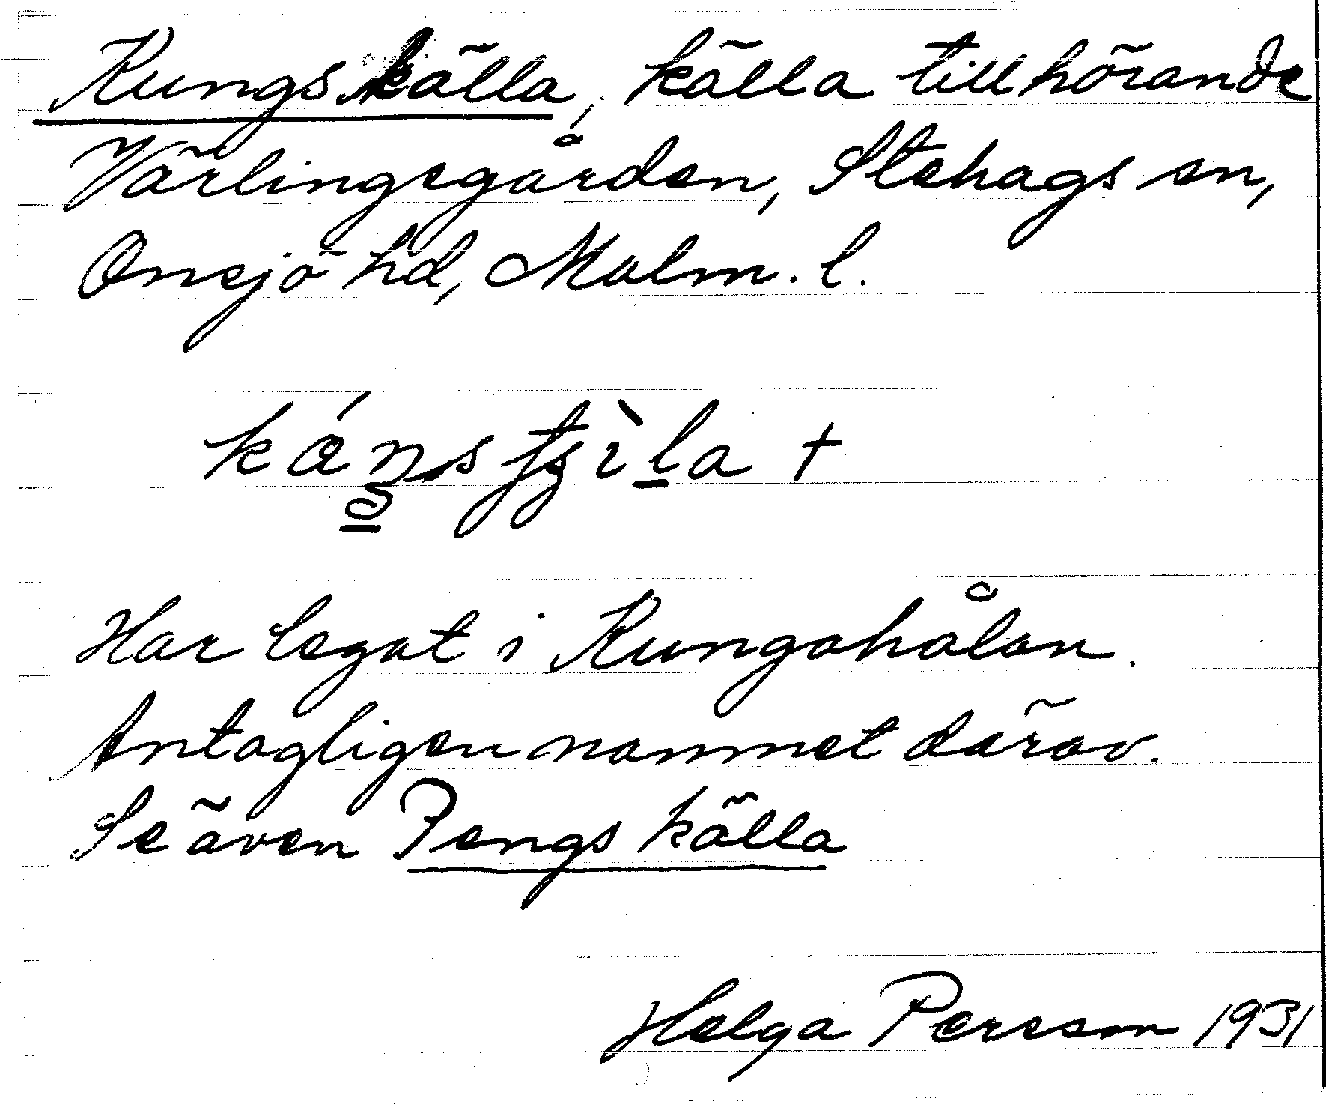 Kungskälla, källa tillhörande
Värlingegården, Stehags sn,
Onsjö hd, Malm. l.
Har legat i Kungahålan.
Antagligen namnet därav.
Se även Pengs källa
Helga Persson 1931